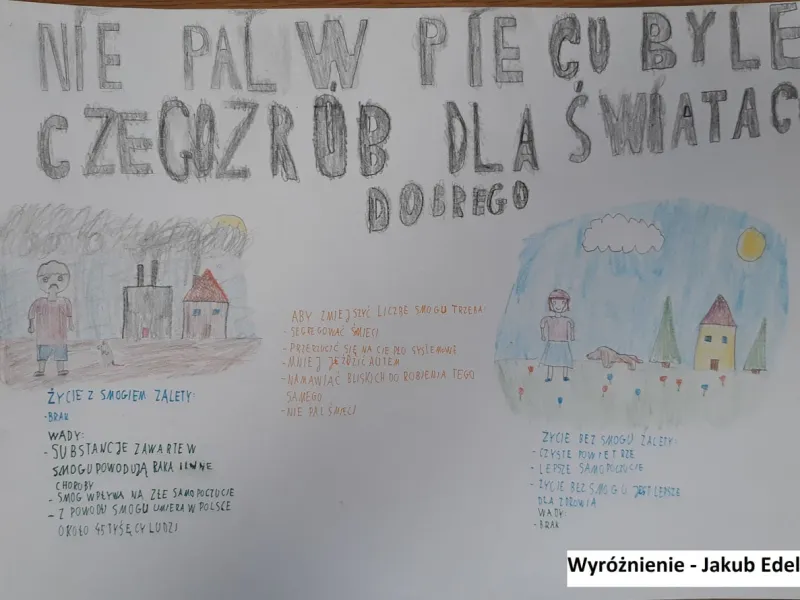 NIE PAL W PIECU BYLE
CZEGOZRÓB DLA ŚWIATAC
DOBREGO
ŻYCIE Z SMOGIEM ZALETY:
-BRAK
WADY:
-SUBSTANCJE ZAWARTE W
SMOGU POWODUJĄ RAKA I INNE
CHOROBY
- SMOG WPŁYWA NA ZŁE SAMOPOCZUCIE
- Z POWODU SMOGU UMIERA W POLSCE
OKOŁO 45 TYŚĘCY LUDZI
ABY ZMIEJSZYĆ LICZBE SMOGU TRZEBA:
- SEGREGOWAĆ ŚMIECI
- PRZERZUCIĆ SIĘ NA CIEPŁO SYSTEMOWE
- MNIEJ JEŹDZIĆ AUTEM
- NAMAWIAĆ BLISKICH DO ROBIENIA TEGO
SAMEGO
- NIE PAL ŚMIECI
ŻYCIE BEZ SMOGU ZALETY:
- CZYSTE POWIETRZE
- LEPSZE SAMOPOCZUCIE
- ŻYCIE BEZ SMOGU JEST LEPSZE
DLA ZDROWIA
WADY:
- BRAK
Wyróżnienie - Jakub Edel